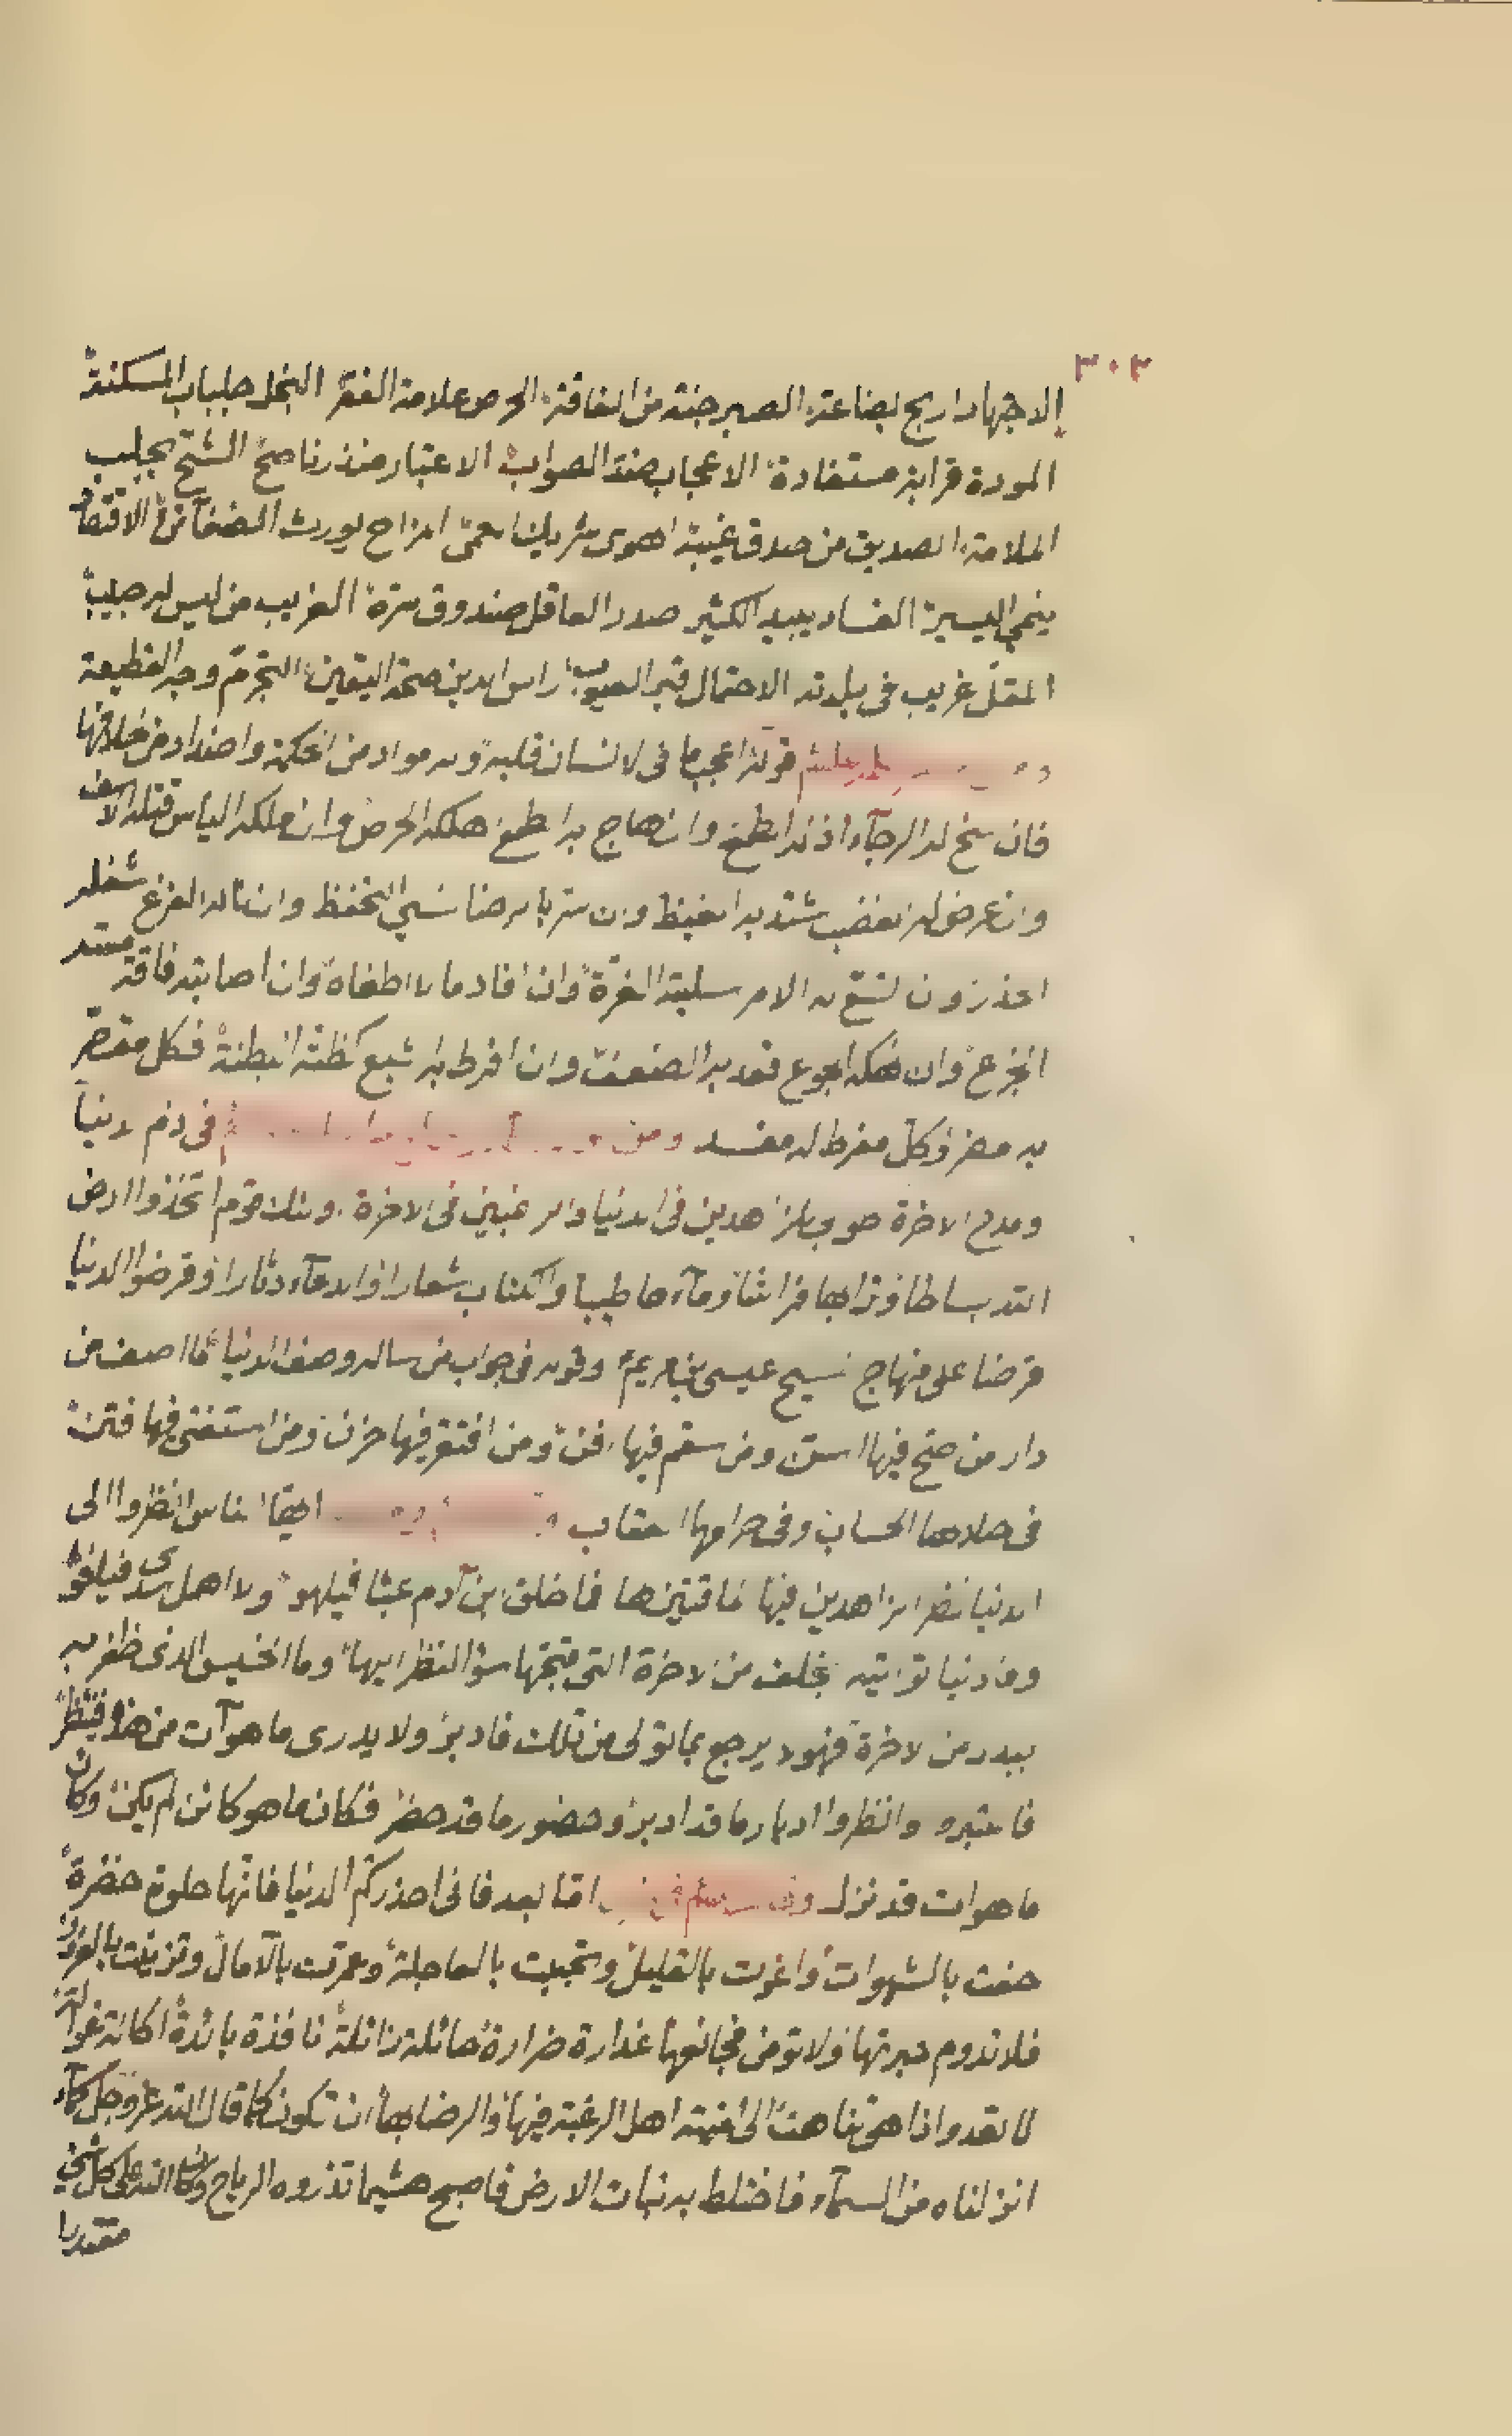 ٣٠٣
الاجتهاد اربح بضاعة الصبر جنة من الفاقة الحرص علامة الفقر البخل جلباب المسكنة
المودة قرابة مستفادة الاعجاب ضد الصواب الاعتبار منذر ناصح الشح يجلب
الملامة الصديق من صدق غيبته الهوى شريك العمى المزاح يورث الضغائن الاقتصاد
ينمي اليسير الفساد يبيد الكثير صدر العاقل صندوق سره الغريب من ليس له حبيب
المقل غريب في بلدته الاحتمال قبر العيوب راس الدين صحة اليقين التجرم وجه القطيعة
قوله اعجب ما في الانسان قلبه وله مواد من الحكمة واضداد من خلافها
فان سنح له الرجآء اذله الطمع وان هاج به الطمع اهلكه الحرص وان ملكه الياس قتله الاسف
وان عرض له الغضب اشتد به الغيظ وان سر بالرضا نسي التحفظ وان ناله الفزع شغله
الحذر وان اتسع له الامر سلبته الغرة وان افاد مالا اطغاه وان اصابته فاقة مسه
الجزع وان نهكه الجوع قعد به الضعف وان افرط به الشبع كظته البطنة فكل مقصر
به مضر وكل مفرط له مفسد في ذم الدنيا
ومدح الاخرة طوبى للزاهدين في الدنيا والراغبين في الاخرة اولئك قوم اتخذوا ارض
الله بساطا وترابها فراشا ومآءها طيبا والكتاب شعارا والدعآء دثارا وقرضوا الدنيا
قرضا على منهاج المسيح عيسى بن مريم وقوله في جواب من ساله وصف الدنيا ما اصف من
دار من صح فيها امن ومن سقم فيها ومن افتقر فيها حزن ومن استغنى فيها فتن
في حلالها الحساب وفي حرامها العقاب ايها الناس انظروا الى
الدنيا نظر الزاهدين فيها فما خلق ابن آدم عبثا فيلهو ولا اهمل سدى فيلغو
وما دنيا تزينت بخلف من الاخرة التي قبحها سؤ النظر اليها وما الخسيس الذي ظفر به
من الاخرة فهو لا يرجع ما تولى من تلك فادبر ولا يدرى ما هو آت من هذه فينتظر
فاعتبروا وانظروا ادبار ما قد ادبر وحضور ما قد حضر فكان ما هو كائن لم يكن وكان
ما هو ات قد نزل اما بعد فانى احذركم الدنيا فانها حلوة خضرة
حفت بالشهوات واغرت بالقليل وتحببت بالعاجلة وعمرت بالآمال وتزينت بالغرور
فلا تدوم حبرتها ولا تومن فجائعها غدارة ضرارة حائلة زائلة نافذة بائدة اكالة غوالة
لا تعدو اذا هي تناهت الى امنية اهل الرغبة فيها والرضا بها ان تكون كما قال الله عز وجل كمآء
انزلناه من السمآء فاختلط به نبات الارض فاصبح هشيما تذروه الرياح وكان الله على كل شيء
مقتدرا